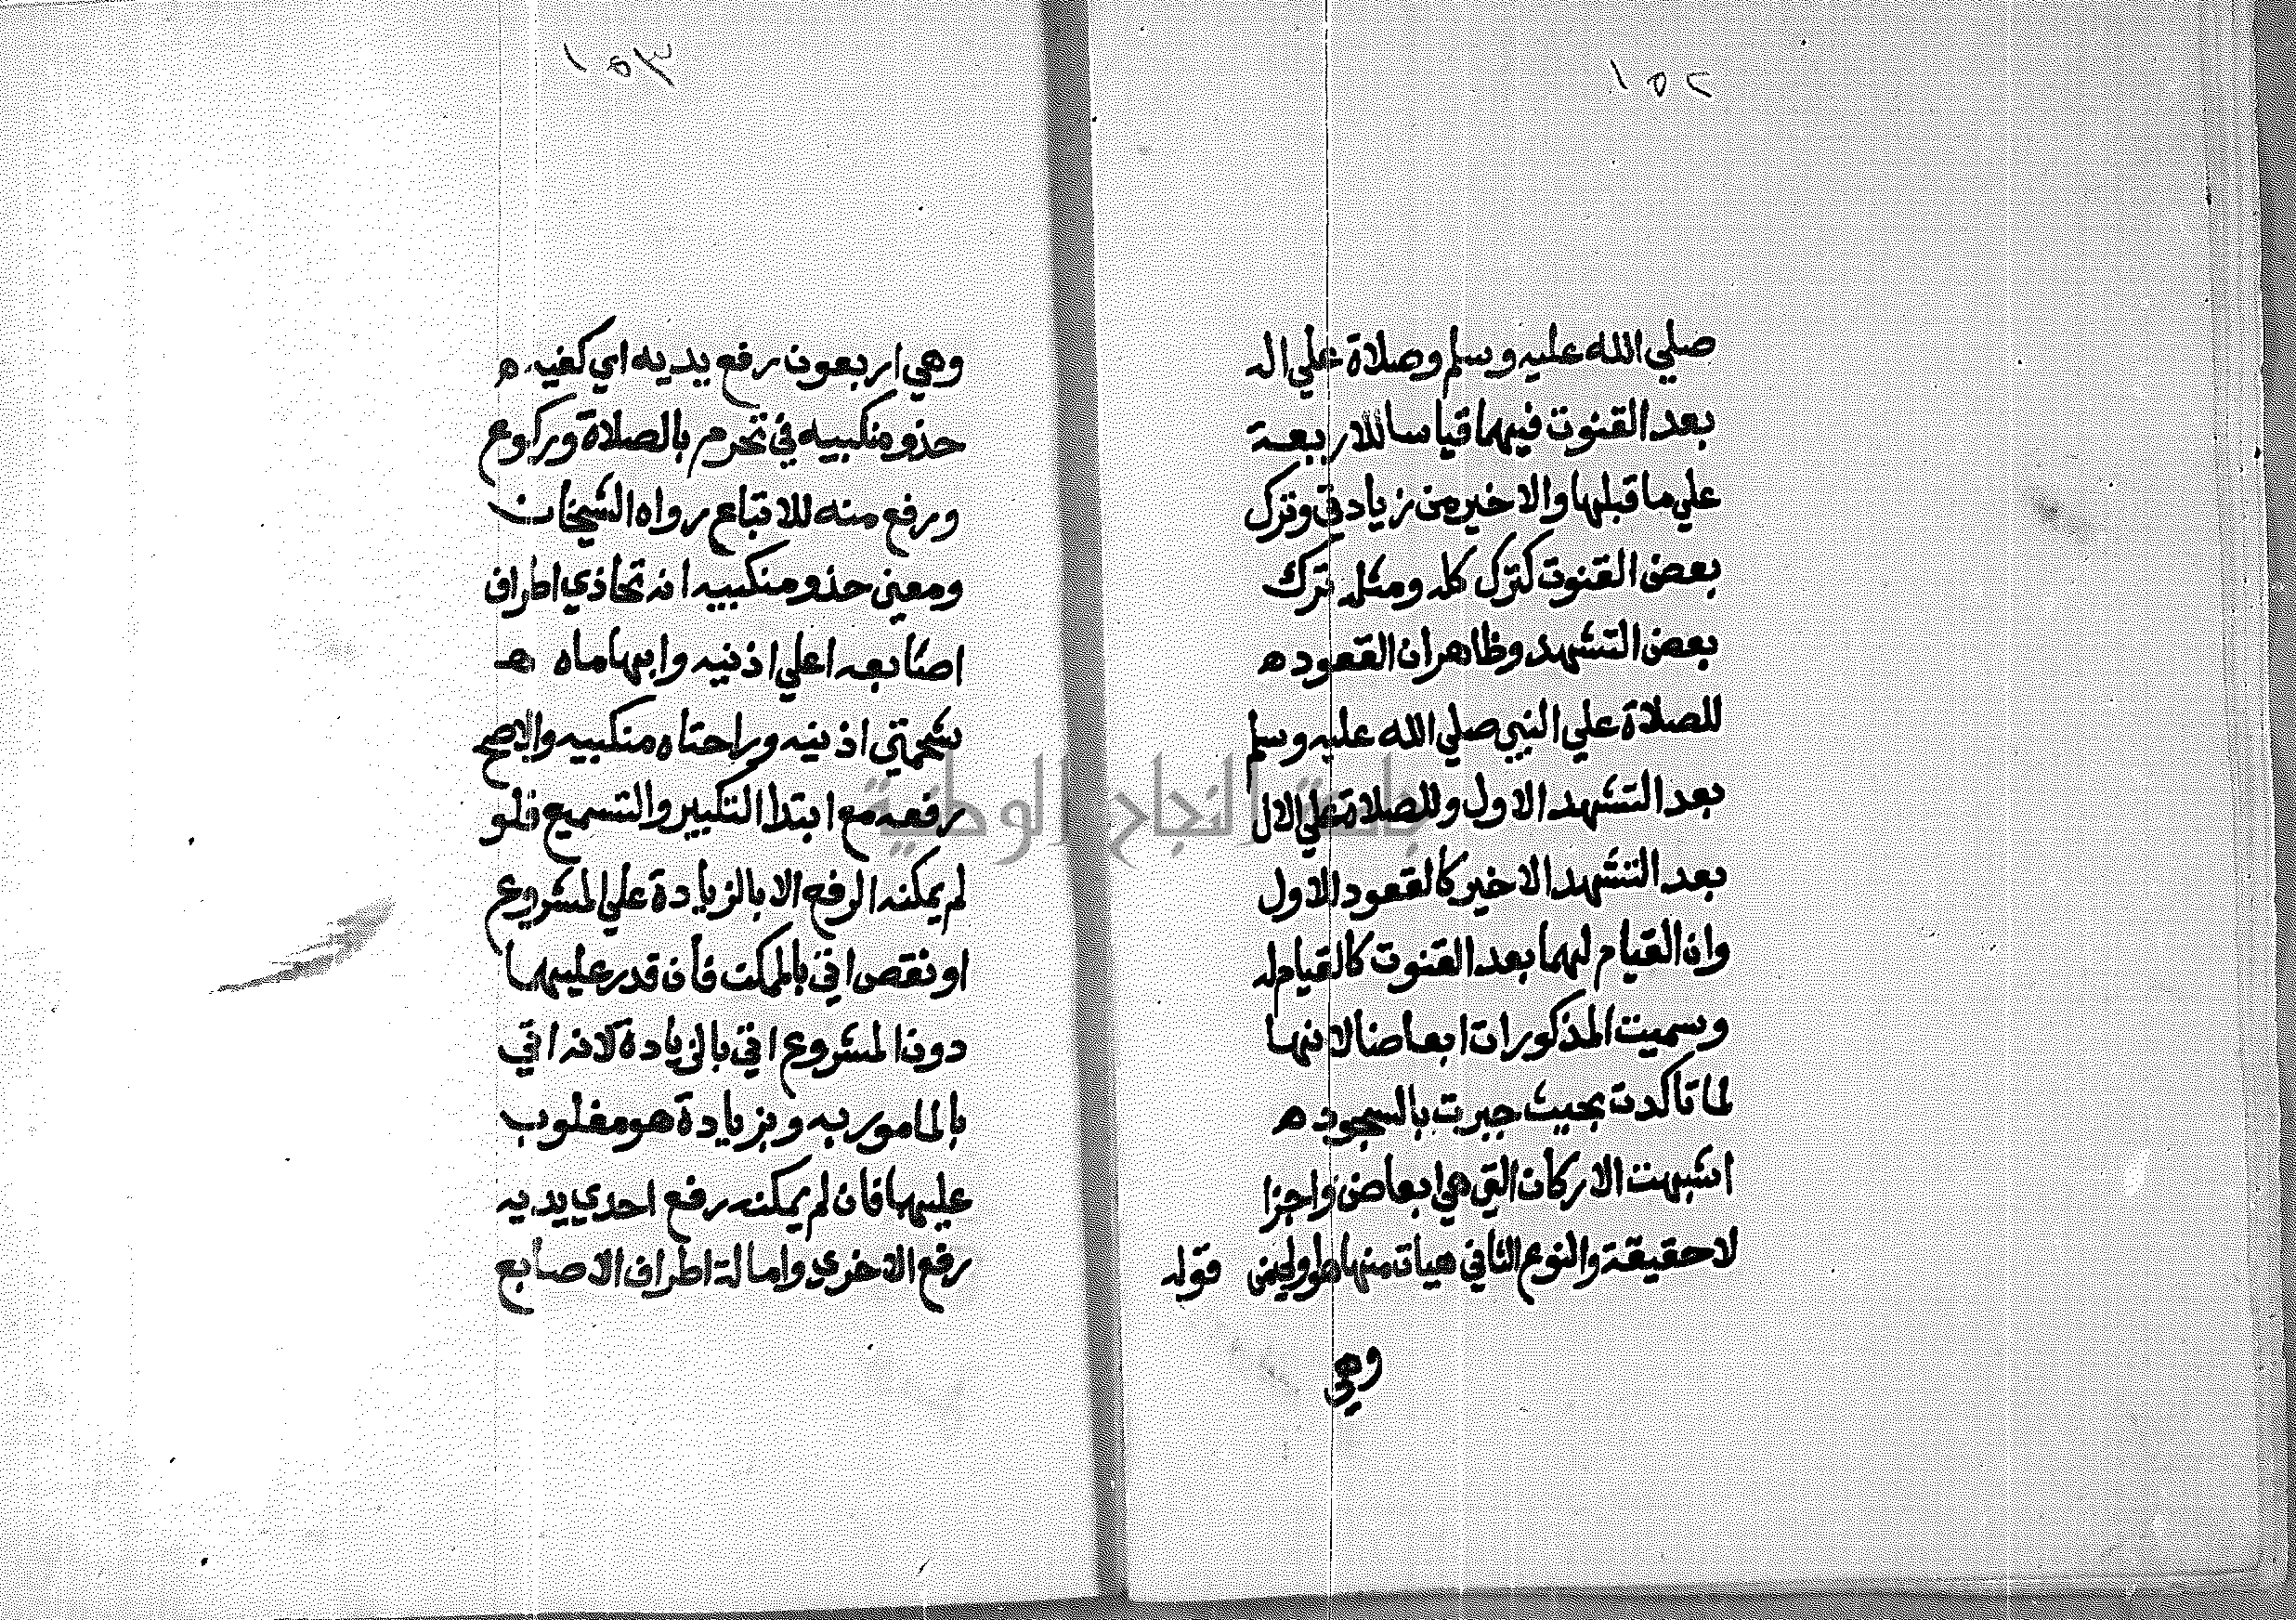 ١٥٢
صلي الله عليه وسلم وصلاة علي اله
بعد القنوت فيهما قياسا للاربعة
علي ما قبلها والاخير من زيادتي وترك
بعض القنوت كترك كله ومثله ترك
بعض التشهد وظاهر ان القعود ه
للصلاة علي النبي صلي الله عليه وسلم
بعد التشهد الاول وللصلاة علي الال
بعد التشهد الاخير كالقعود للاول
وان القيام لهما بعد القنوت كالقيام له
وسميت المذكورات ابعاضا لانها
لما تاكدت بحيث جبرت بالسجود ه
اشبهت الاركان التي هي ابعاض واجزا
لا حقيقة والنوع الثاني هيات منها قوله
وهي
١٥٣
وهي اربعون رفع يديه اي كفيه ه
حذو منكبيه في تحرم بالصلاة وركوع
ورفع منه للاتباع رواه الشيخان
ومعني حذو منكبيه انه تحاذي اطراف
اصابعه اعلي اذنيه وابهاماه ه
شحمتي اذنيه وراحتاه منكبيه والاصح
رفعه مع ابتدا التكبير والتسميع فلو
لم يمكنه الرفع الا بالزيادة علي المشروع
او نقص اتي بالممكن فأن قدر عليهما
دون المشروع اتي بالزيادة لانه اتي
بالمامور به وبزيادة هو مغلوب
عليها فان لم يمكنه رفع احدي يديه
رفع الاخري وامالة اطراف الاصابع
جامعة النجاح الوطنية